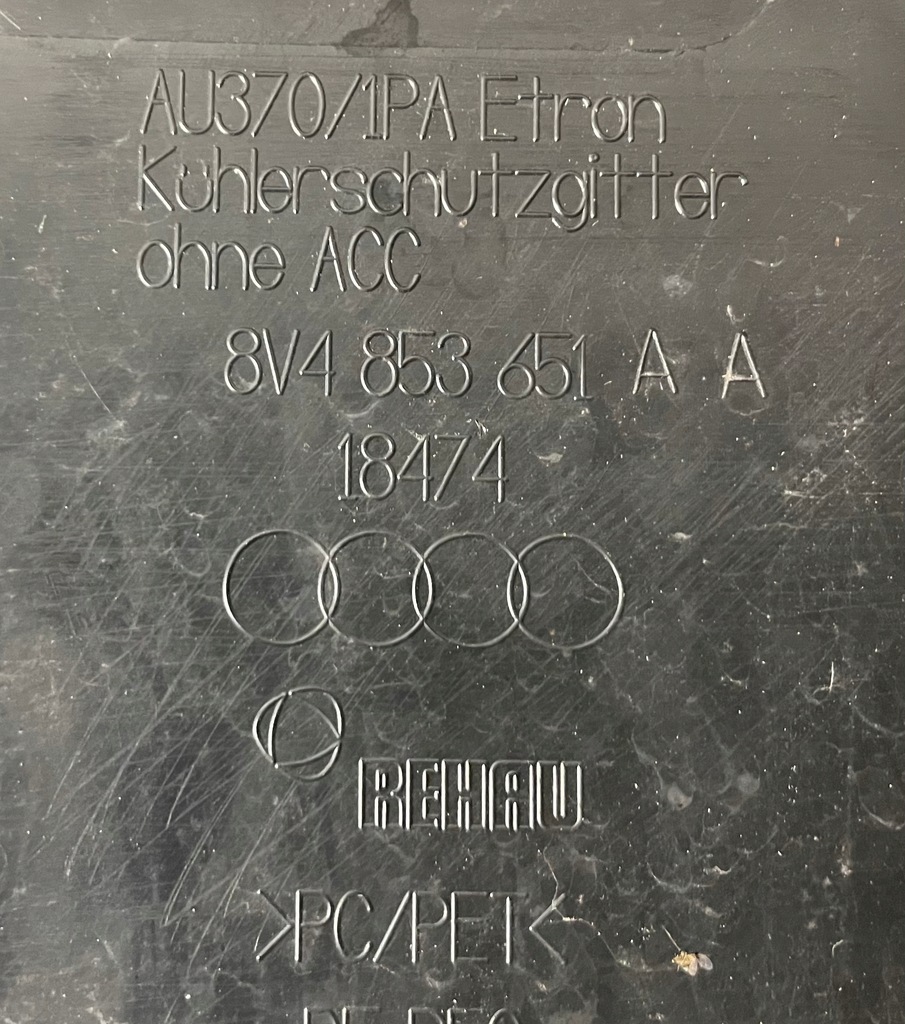 AU370/1PA Etron
Kühlerschutzgitter
ohne ACC
8V4 853 651 A A
18474
REHAU
>PC/PET<